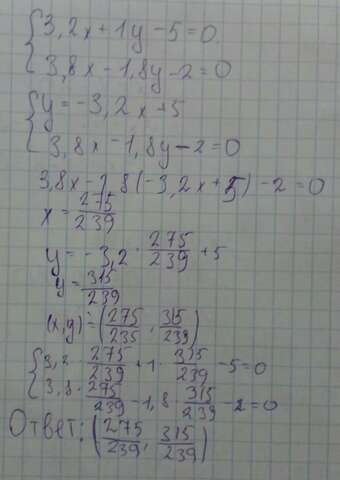 {3,2x+1y-5=0
{3,8x-1,8y-2=0
{y=-3,2x+5
{3,8x-1,8y-2=0
3,8x-1,8(-3,2x+5)-2=0
x=275/239
y=-3,2·275/239+5
y=315/239
(x,y)=(275/235, 315/239)
{3,2·275/239+1·315/239-5=0
{3,8·275/239-1,8·315/239-2=0
Ответ: (275/239, 315/239)